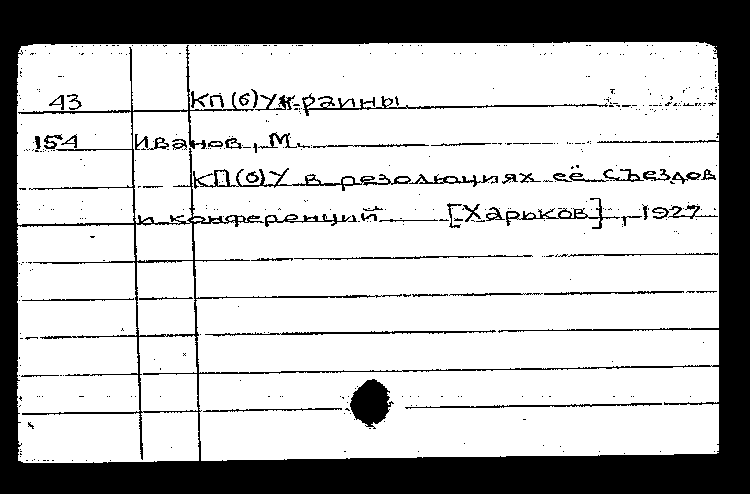 43 КП(б)Украины
154 Иванов, М.
КП(б)У в резолюциях её съездов
и конференций. [Харьков], 1927